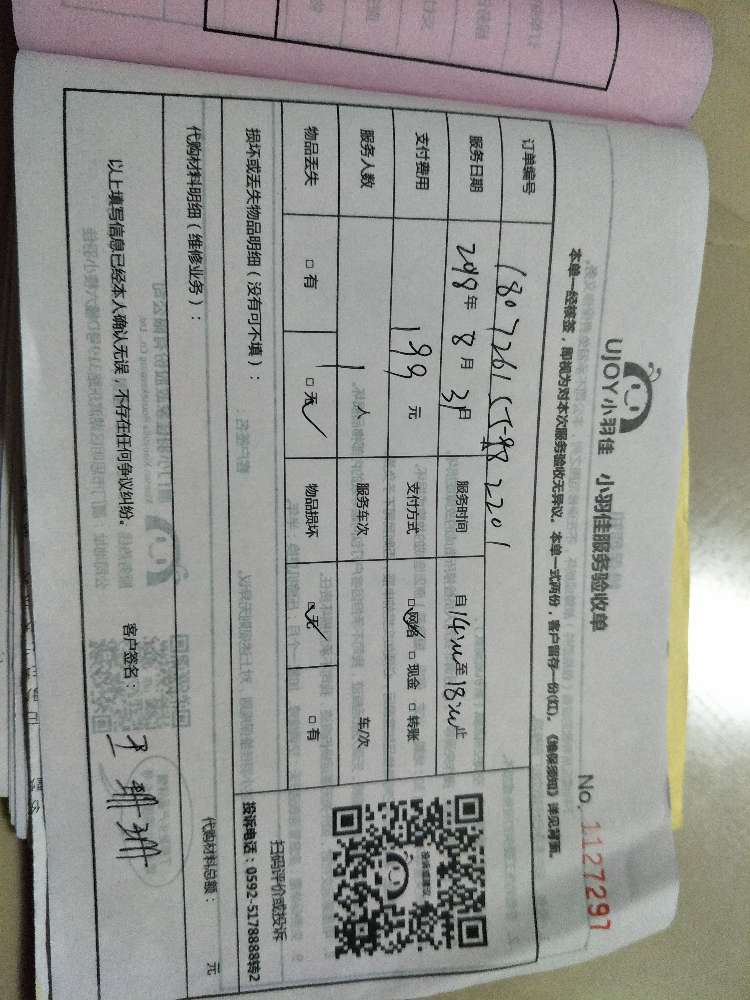 UJOY小羽佳 小羽佳服务验收单
No. 1127297
本单一经核签，即视为对本次服务验收无异议。本单一式两份，客户留存一份(红)。《维保须知》详见背面。
订单编号
服务日期 2018年 8月 3日 服务时间 自14:00至18:00止
支付费用 199 元 支付方式 □网络 □现金 □转账
服务人数 1 人 服务车次 车/次
物品丢失 □有 □无 物品损坏 □无 □有
扫码评价或投诉
投诉电话：0592-5178888转2
损坏或丢失物品明细（没有可不填）：
代购材料明细（维修业务）：
代购材料总额： 元
以上填写信息已经本人确认无误，不存在任何争议纠纷。 客户签名：